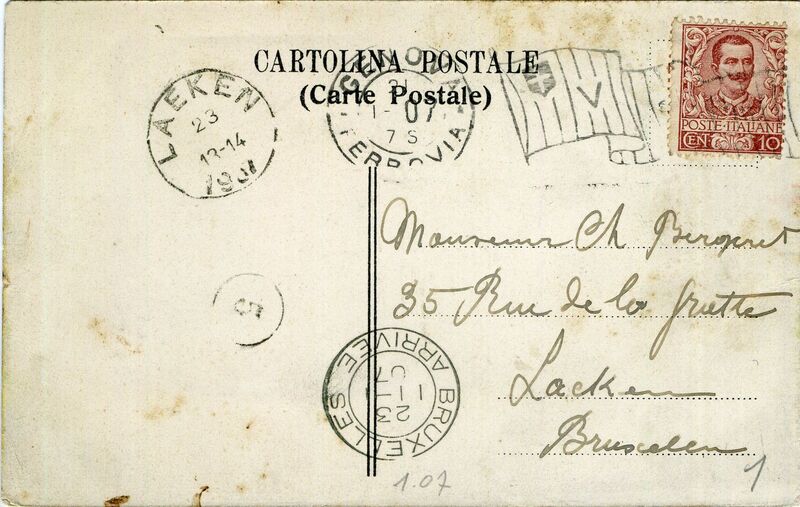 CARTOLINA POSTALE
(Carte Postale)
LAEKEN
23
13-14
1907
GENOVA
21
1-07
7S
FERROVIA
POSTE·ITALIANE
CEN 10
Monsieur Ch
35 Rue de la Grotte
Laeken
Bruxelles
5
BRUXELLES
ARRIVEE
23
1-11
07
1.07
1